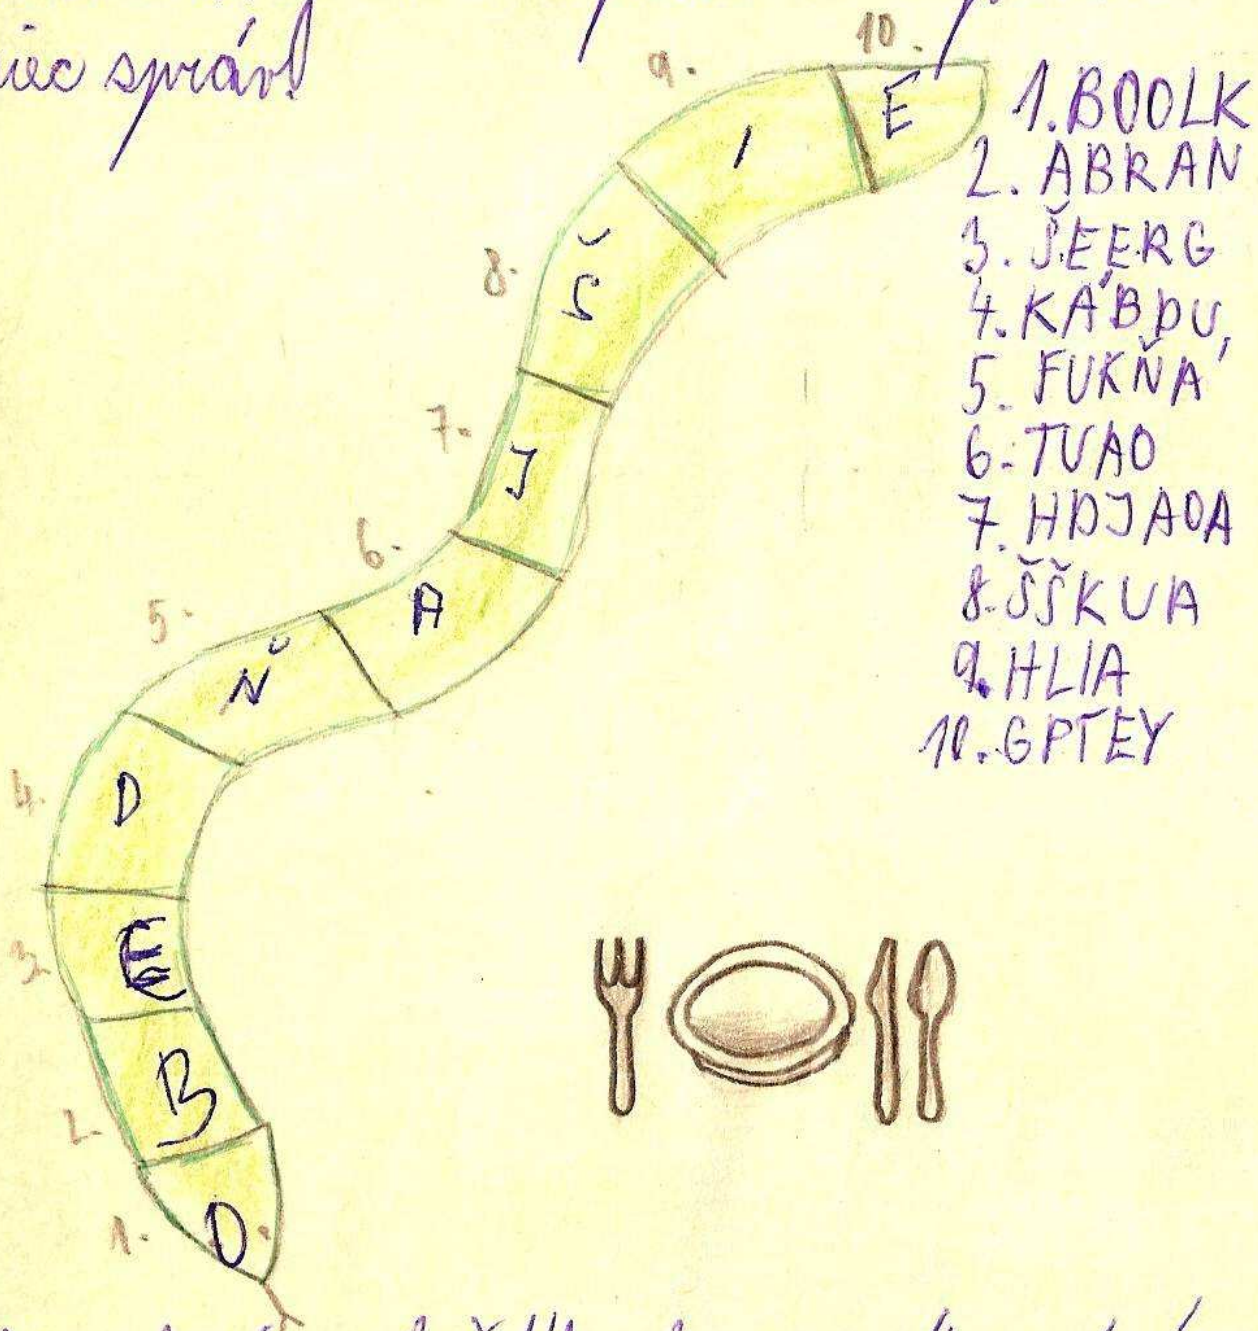 iec správ!
10. E
9. I
8. Š
7. J
6. A
5. Ň
4. D
3. E
2. B
1. O
1. BOOLK
2. ABRAN
3. ŠEERG
4. KÁBDU
5. FUKŇÁ
6. TUAO
7. HDJAOA
8. ŠŠKUA
9. HLIA
10. GPTEY